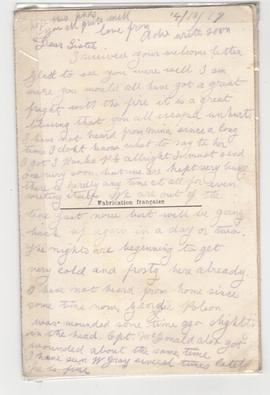 14/10/17
hope this finds
you all quite well
love from Ache write soon
Dear Sister
I received your welcome letter
Glad to see you were well I am
sure you would all have got a great
fright with the fire it is a great
blessing that you all escaped unhurt
I have not heard from Mina since a long
time I dont know what to say to her
I got J Banks P.C allright I must send
one very soon, but we are kept very busy
there is hardly any time at all for even
We are out of the
Fabrication française
line just now but will be going
back up again in a day or two.
The nights are beginning to get
very cold and frosty here already
I have not heard from home since
some time now, Geordie
was wounded some time ago slightly
in the head. Cpt McDonald also got
wounded about the same time
I have seen W Gray several times lately
he is fine